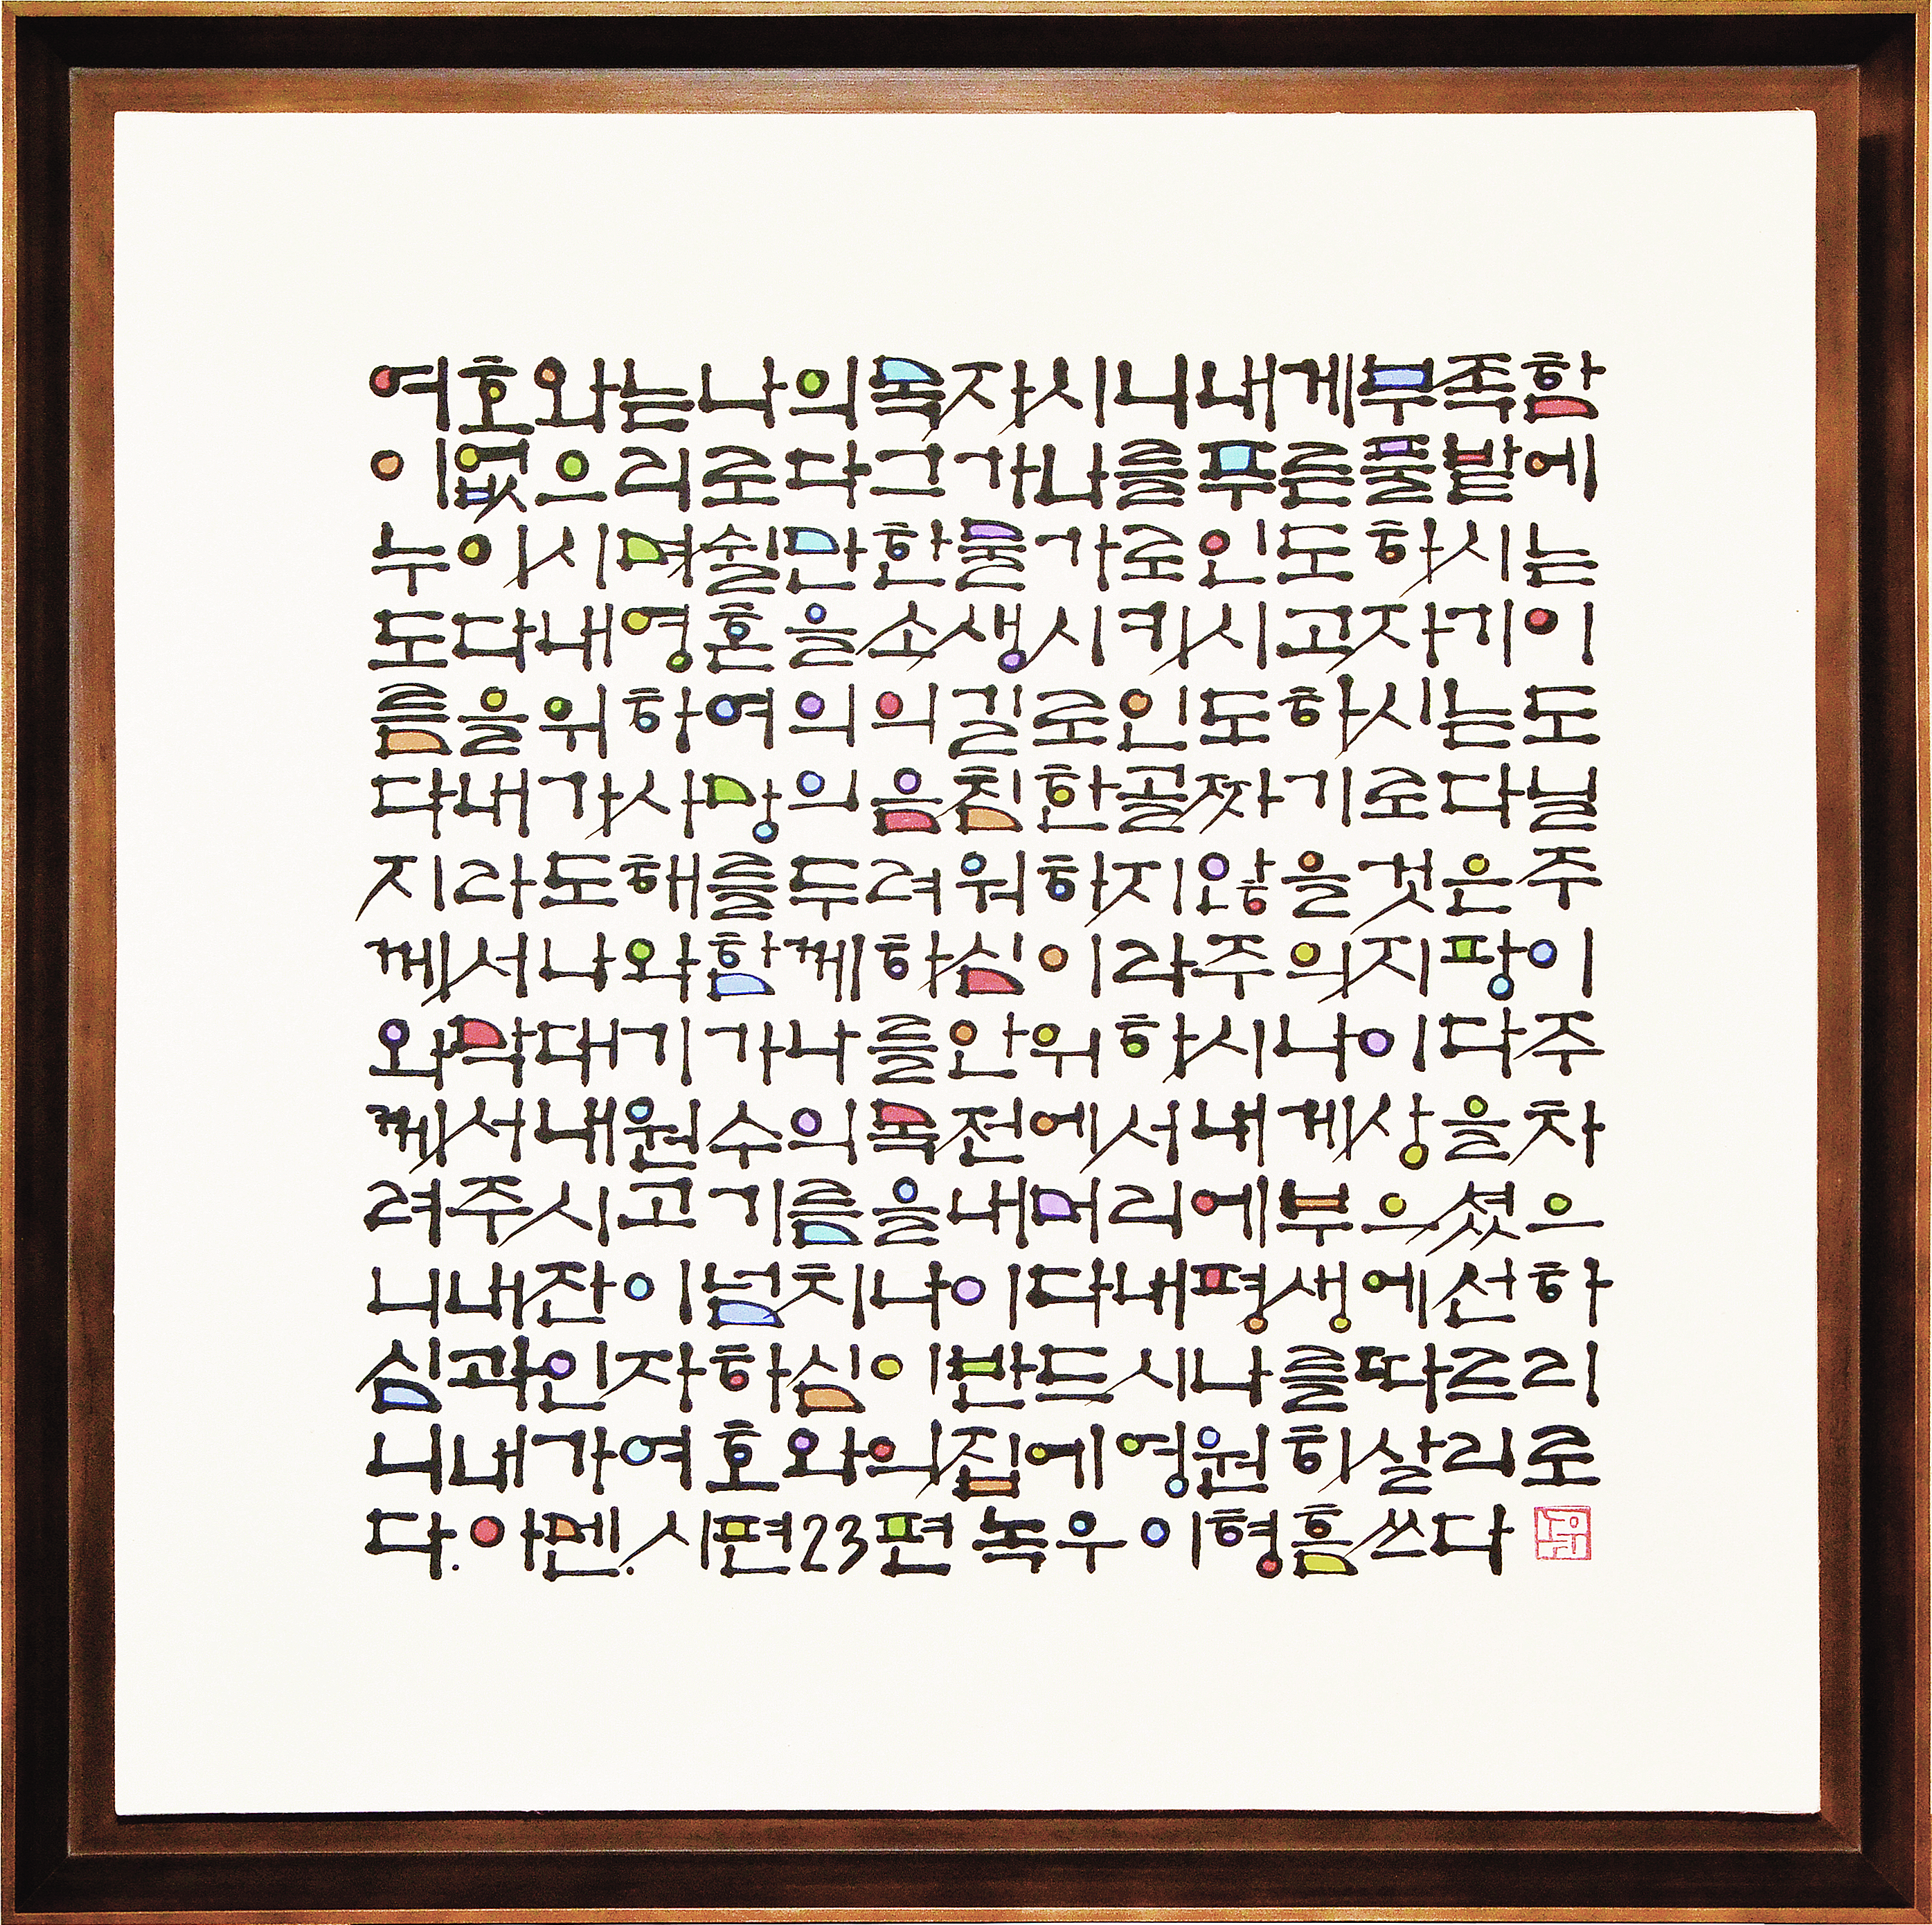 여호와는나의목자시니내게부족함
이없으리로다그가나를푸른풀밭에
누이시며쉴만한물가로인도하시는
도다내영혼을소생시키시고자기이
름을위하여의의길로인도하시는도
다내가사망의음침한골짜기로다닐
지라도해를두려워하지않을것은주
께서나와함께하심이라주의지팡이
와막대기가나를안위하시나이다주
께서내원수의목전에서내게상을차
려주시고기름을내머리에부으셨으
니내잔이넘치나이다내평생에선하
심과인자하심이반드시나를따르리
니내가여호와의집에영원히살리로
다.아멘.시편23편 녹우이형흠쓰다